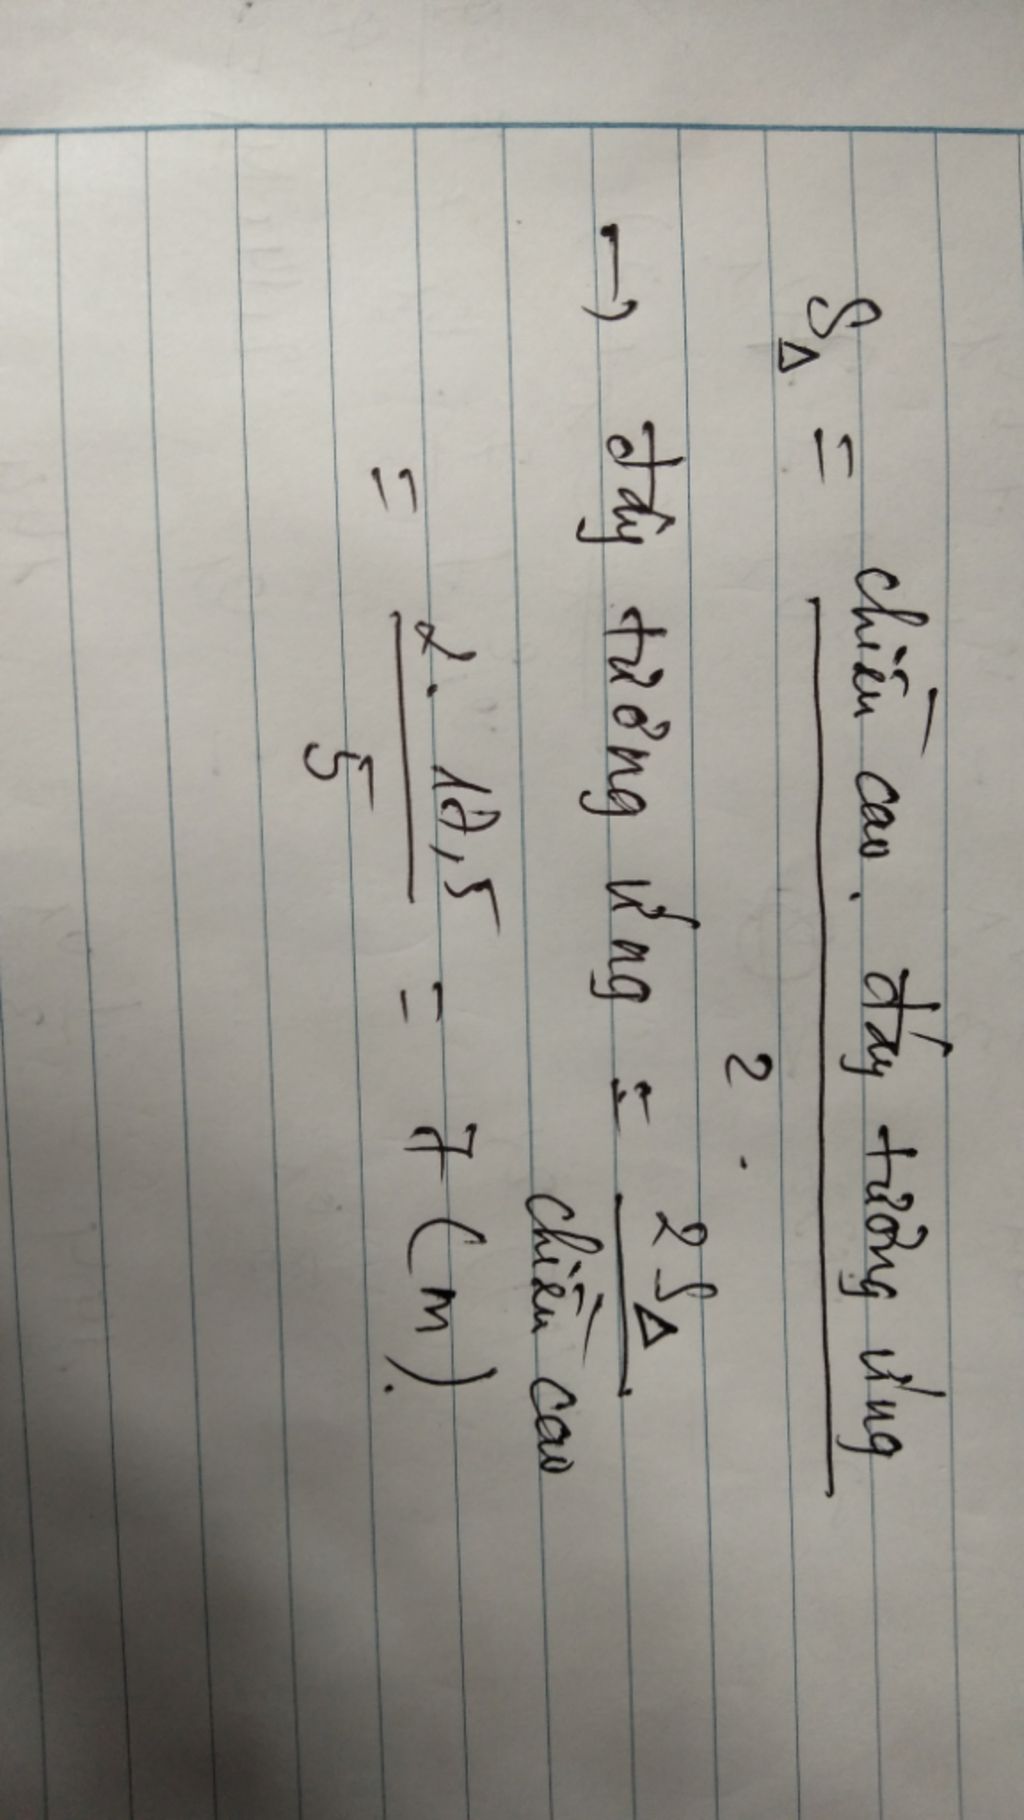 S△ = chiều cao. đáy tương ứng
2
→ đáy tương ứng = 2S△
chiều cao
= 2. 17,5 = 7 (m).
5